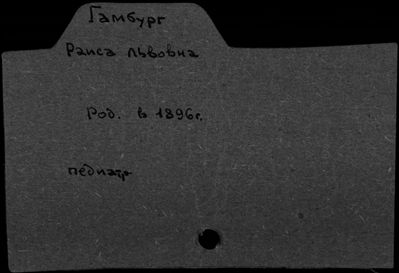 Гамбург
Раиса Львовна
Род. в 1896 г.
педиатр